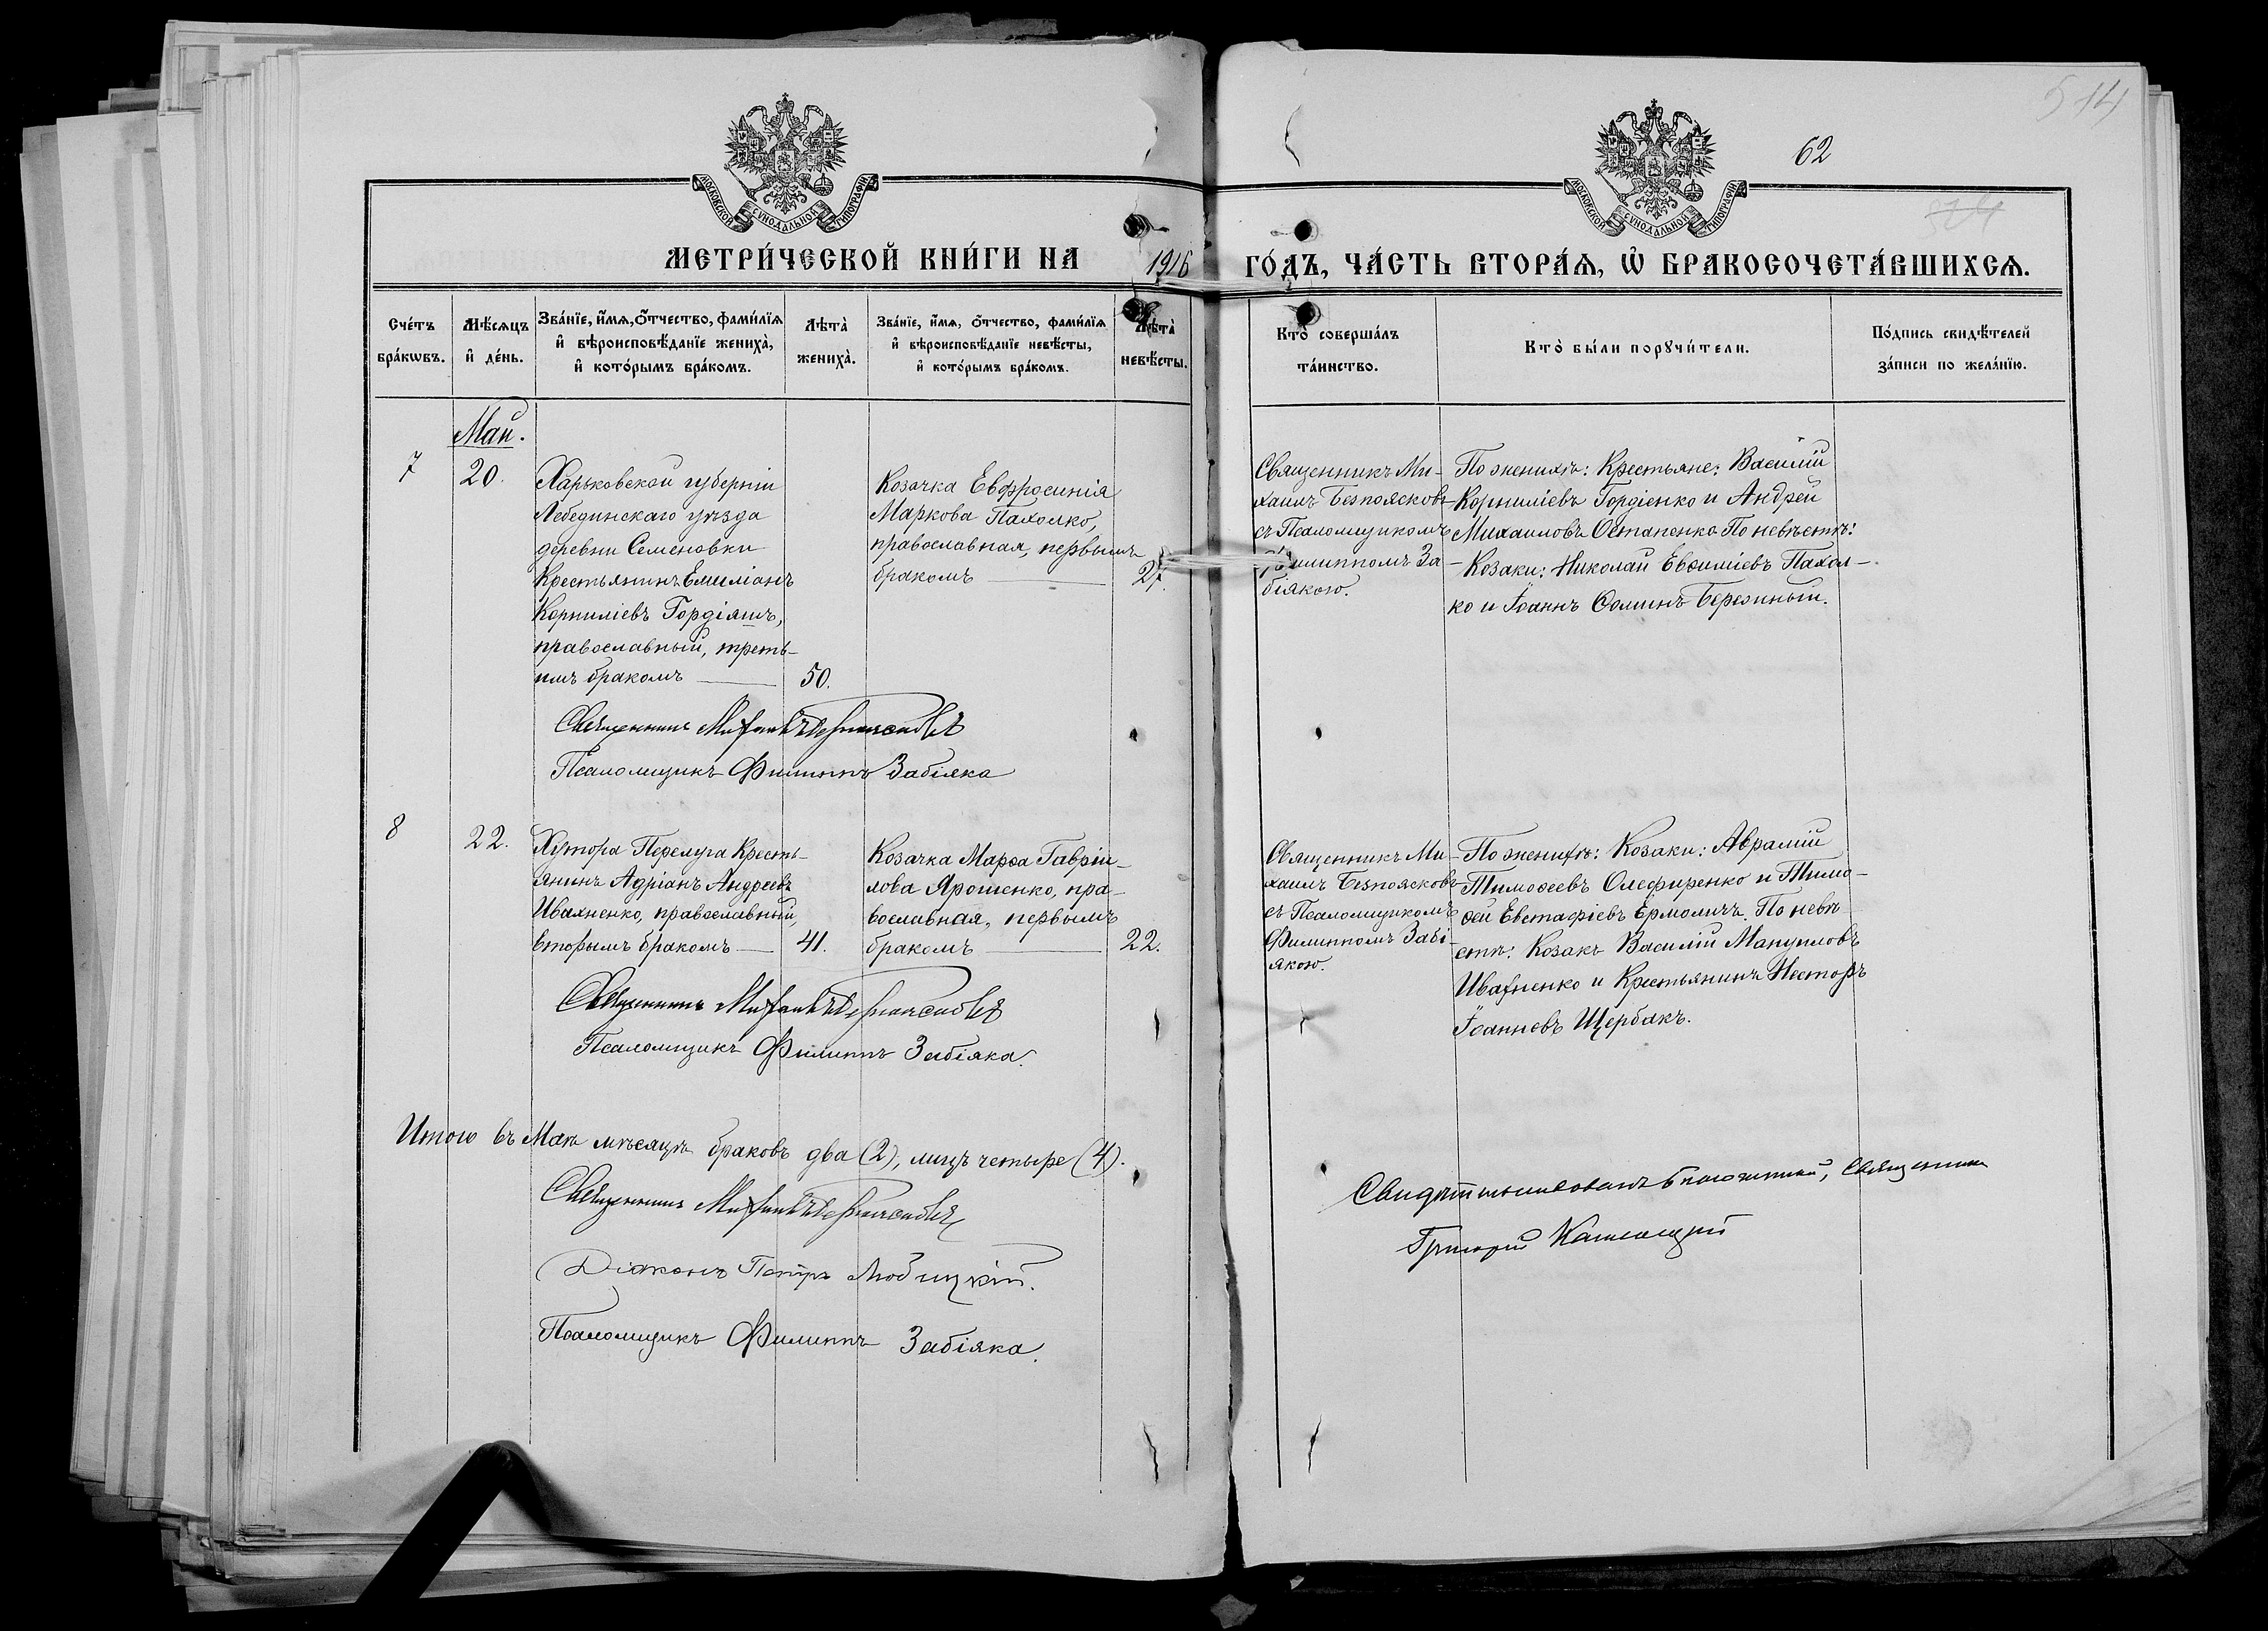 514
62
524
МОСКОВСКОЙ СѴНОДАЛЬНОЙ ТИПОГРАФІИ
МОСКОВСКОЙ СѴНОДАЛЬНОЙ ТИПОГРАФІИ
МЕТРИ́ЧЕСКОЙ КНИ́ГИ НА 1916 ГО́ДЪ, ЧА́СТЬ ВТОРА́Ѧ, Ѡ҆ БРАКОСОЧЕТА́ВШИХСѦ.
Сче́тъ
бра́кѡвъ.
Мѣ́сяцъ
и҆ де́нь.
Зва́нїе, и҆́мѧ, ѻ҆́тчество, фами́лїѧ
и҆ вѣроисповѣ́данїе жениха̀,
и҆ кото́рымъ бра́комъ.
Лѣта̀
жениха̀.
Зва́нїе, и҆́мѧ, ѻ҆́тчество, фами́лїѧ
и҆ вѣроисповѣ́данїе невѣ́сты,
и҆ кото́рымъ бра́комъ.
Лѣта̀
невѣ́сты.
Кто̀ соверша́лъ
та́инство.
Кто̀ бы́ли порꙋчи́тели.
По́дпись свидѣ́телей
за́писи по жела́нїю.
Май.
7
20.
Харьковской губерніи
Лебединскаго уѣзда
деревни Семеновки
Крестьянинъ Емиліанъ
Корниліевъ Гордіяшъ,
православный, треть-
имъ бракомъ
50.
Козачка Евфросинія
Маркова Пахолко,
православная, первымъ
бракомъ
27.
Священникъ Ми-
хаилъ Безпоясковъ
съ Псаломщикомъ
Филиппомъ За-
біякою.
По женихѣ: Крестьяне: Василій
Корниліевъ Гордіенко и Андрей
Михаиловъ Остапенко По невѣстѣ:
Козаки: Николай Евѳиміевъ Пахол-
ко и Іоаннъ Ѳоминъ Березный.
Священникъ Михаилъ Безпоясковъ
Псаломщикъ Филиппъ Забіяка
8
22.
Хутора Перелуга Кресть-
янинъ Адріанъ Андреевъ
Ивахненко, православный,
вторымъ бракомъ
41.
Козачка Марѳа Гавріи-
лова Ярошенко, пра-
вославная, первымъ
бракомъ
22.
Священникъ Ми-
хаилъ Безпоясковъ
съ Псаломщикомъ
Филиппомъ Забі-
якою.
По женихѣ: Козаки: Аврамій
Тимоѳеевъ Олефиренко и Тимо-
ѳей Евстафіевъ Ермоличъ. По невѣ-
стѣ: Козакъ Василій Мануиловъ
Ивахненко и Крестьянинъ Несторъ
Іоанновъ Щербакъ.
Священникъ Михаилъ Безпоясковъ
Псаломщикъ Филиппъ Забіяка.
Итого въ Маѣ мѣсяцѣ браковъ два (2), лицъ четыре (4).
Священникъ Михаилъ Безпоясковъ
Діяконъ Петръ Любицкій.
Псаломщикъ Филиппъ Забіяка.
Свидѣтельствовалъ благочинный, Священникъ
Григорій